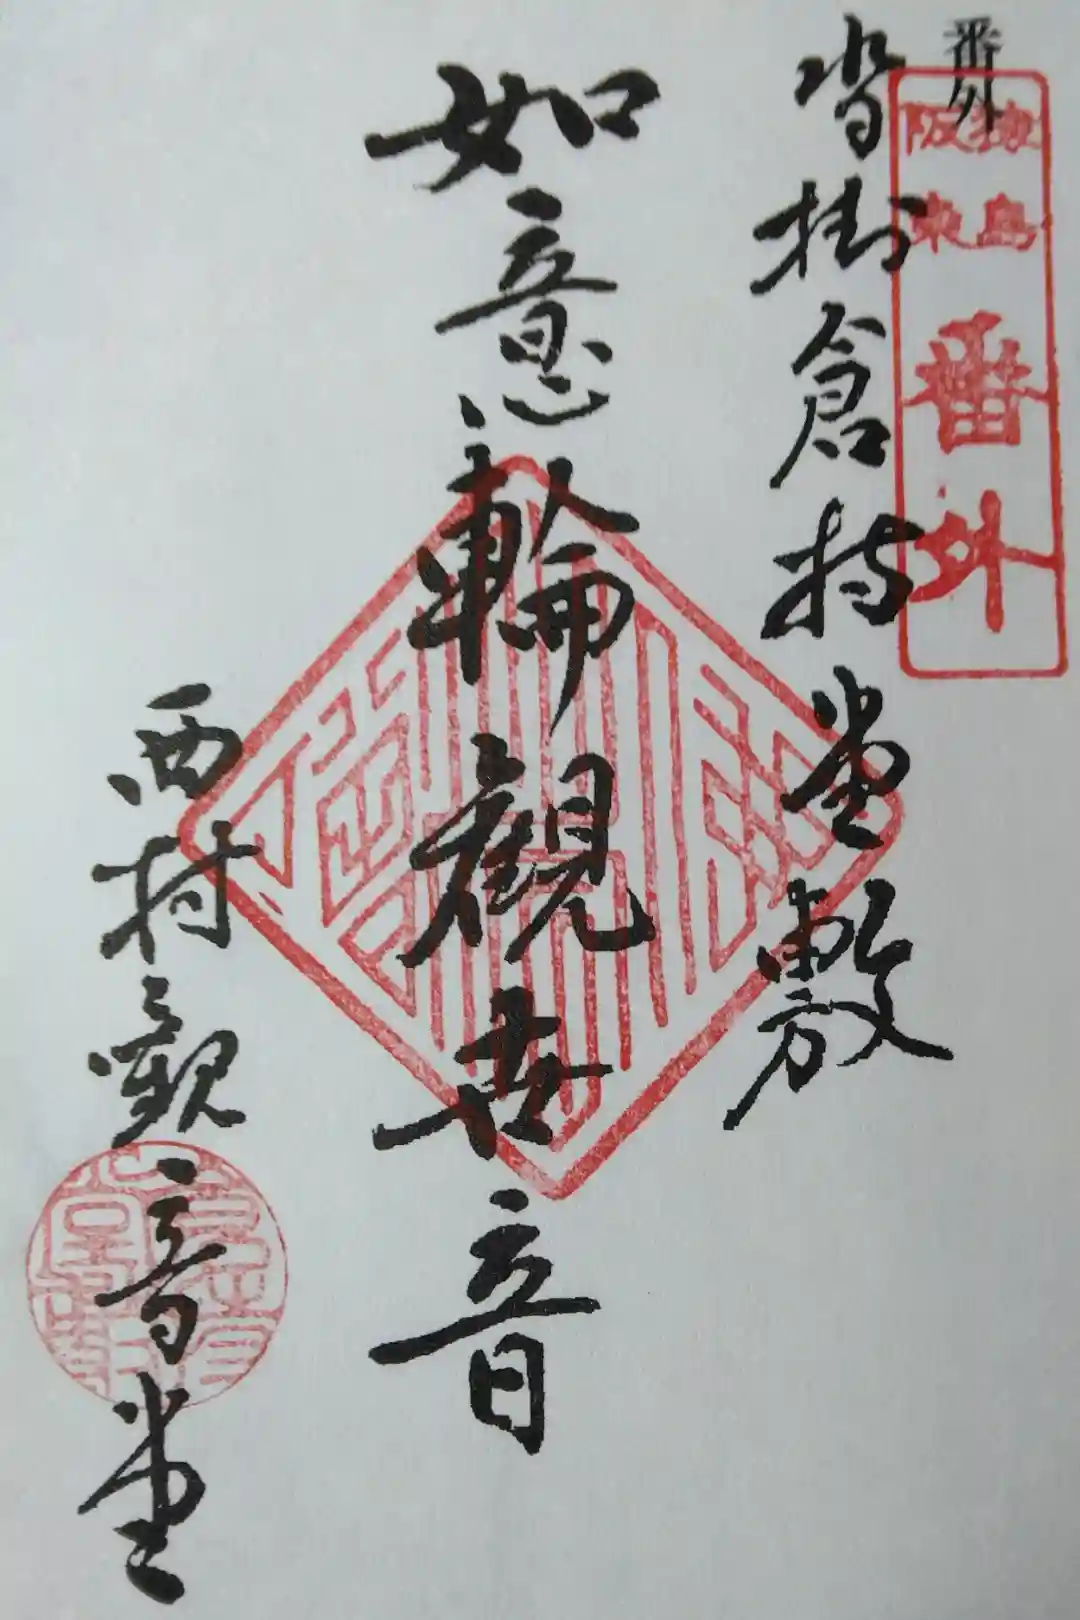 番外
猿島
阪東
番外
沓掛倉持堂敷
如意輪観世音
西村観音堂